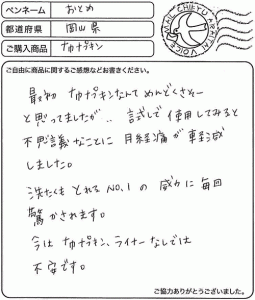 ペンネーム おとめ
都道府県 岡山県
ご購入商品 布ナプキン
ご自由に商品に関するご感想などお書きください。
最初 布ナプキンなんてめんどくさそー
と思ってましたが‥ 試しで使用してみると
不思議なことに月経痛が軽減
しました。
洗たくもとれるNO.1の威力に毎回
驚かされます。
今は布ナプキン、ライナーなしでは
不安です。
ご協力ありがとうございました。